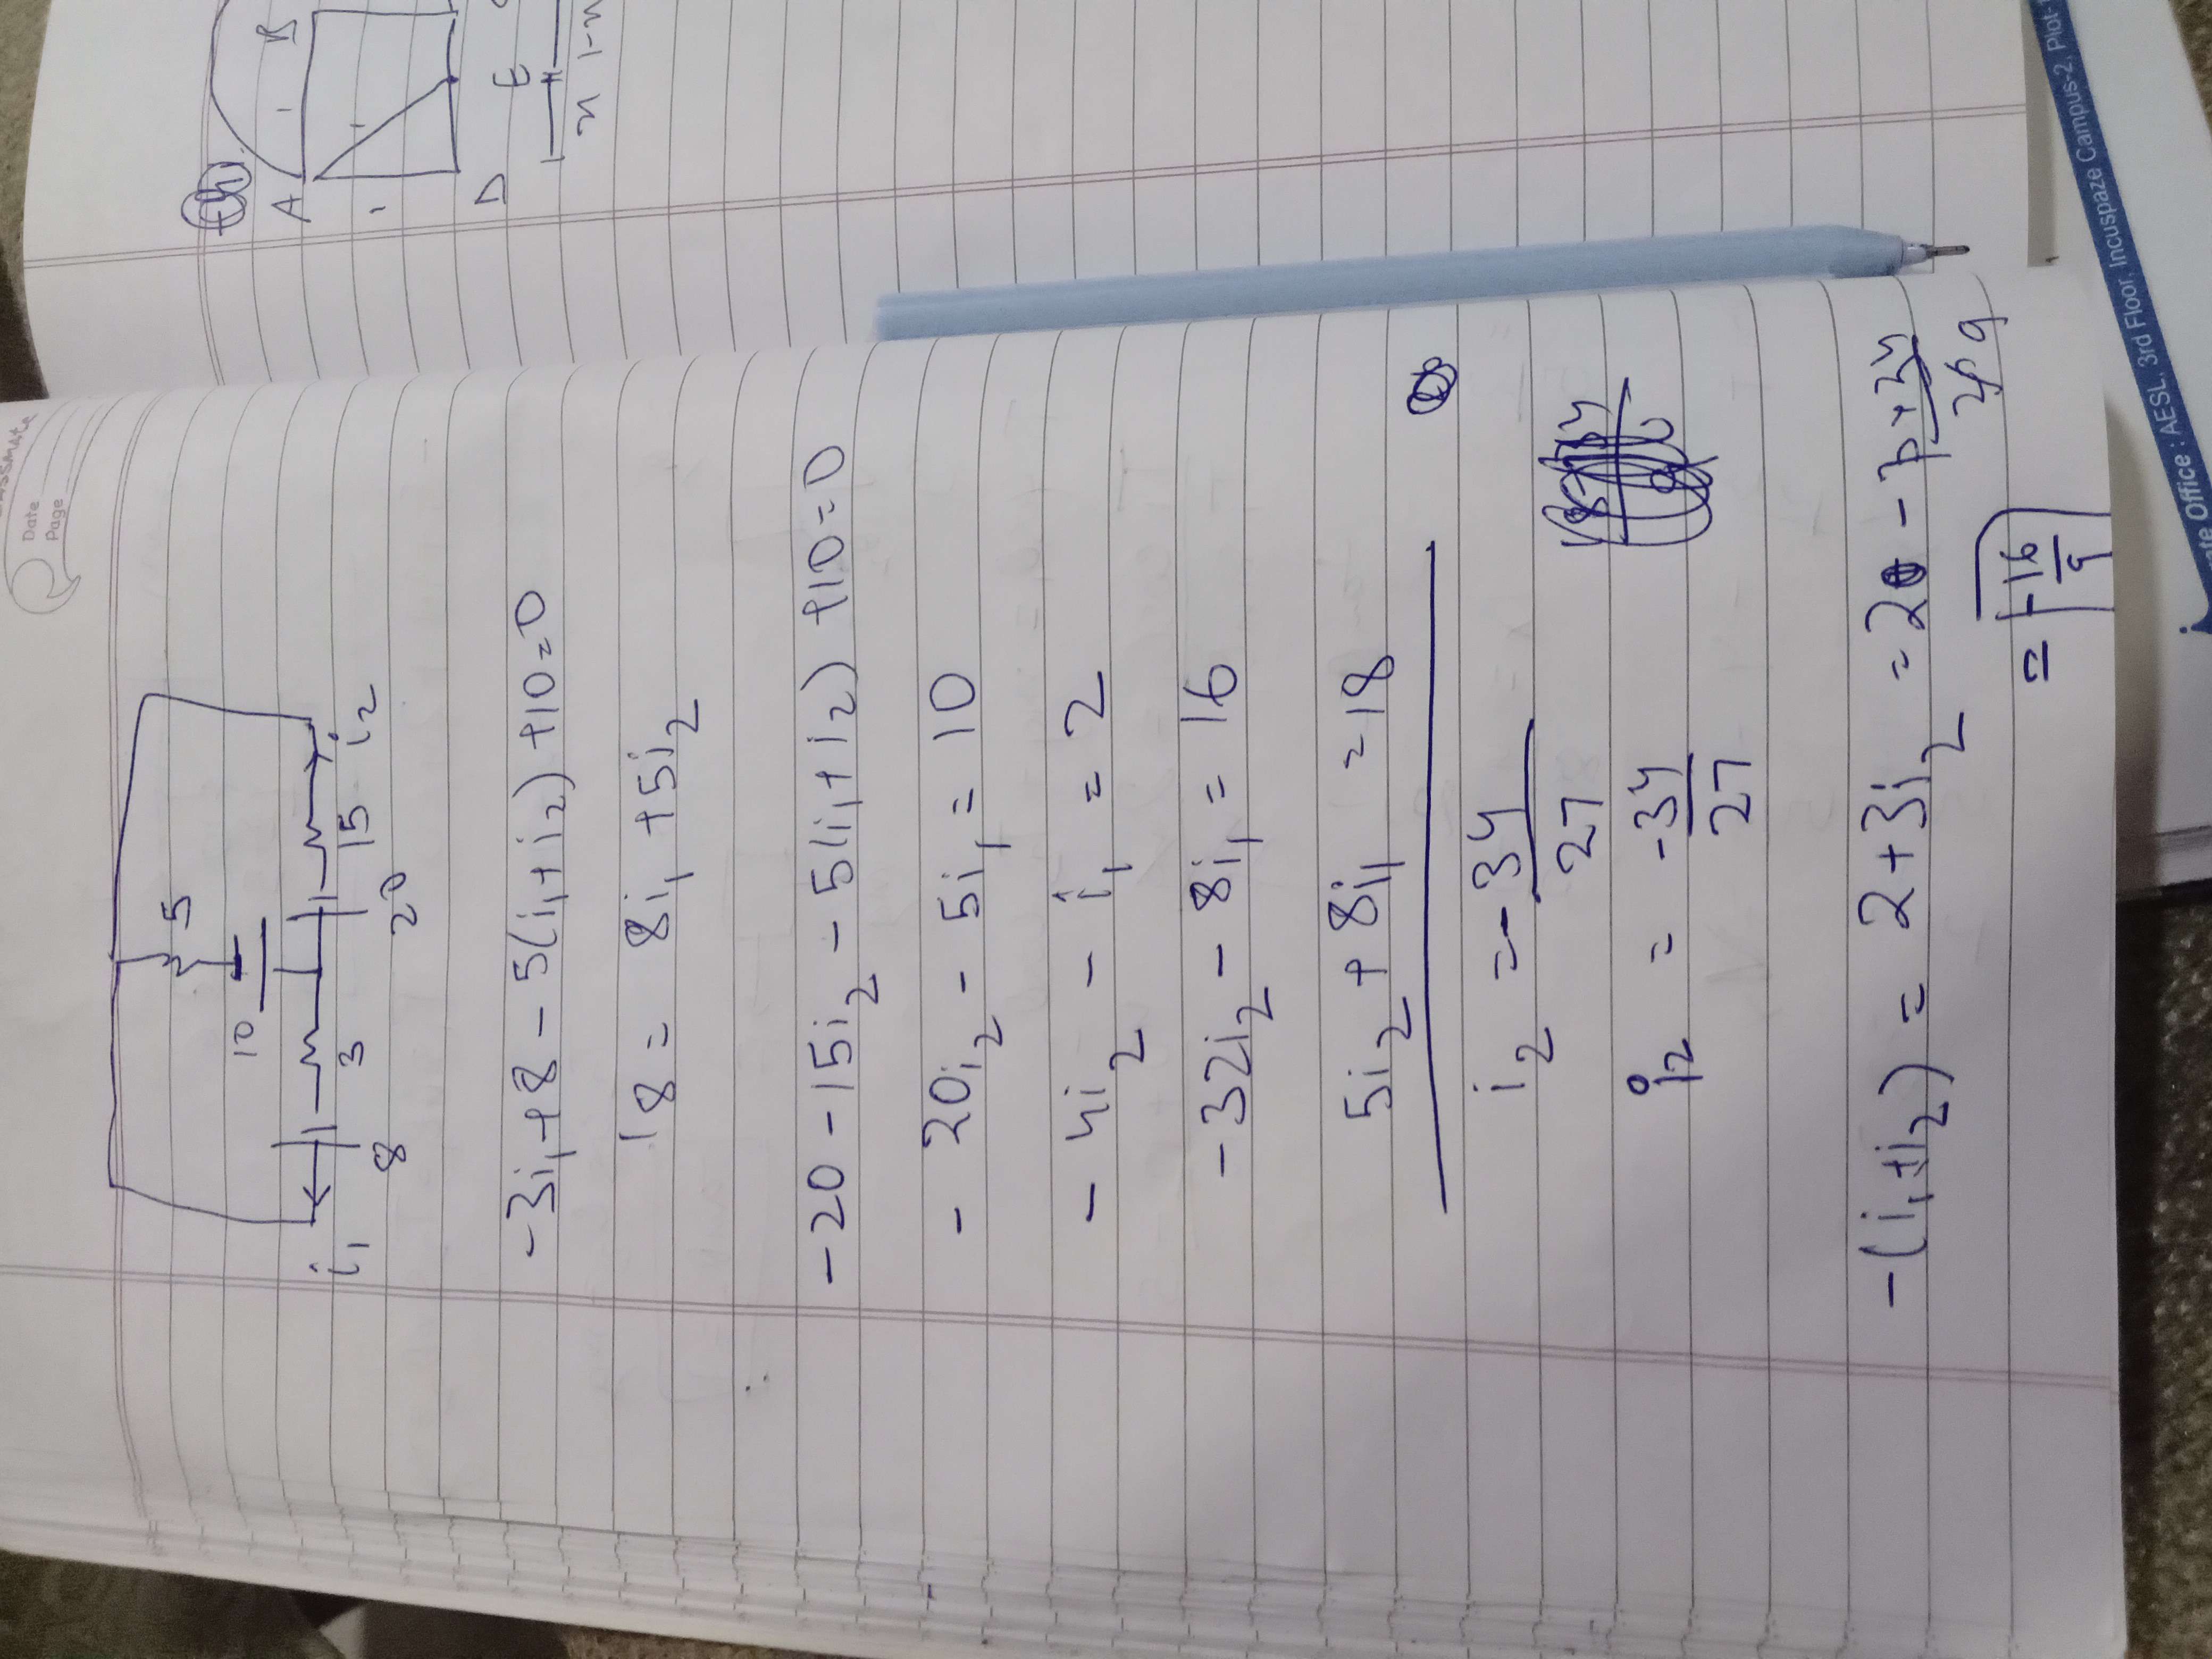 CLASSMATE
Date
Page
5
10
3
15
i₁
8
20
i₂
-3i₁+8-5(i₁+i₂)+10=0
18 = 8i₁+5i₂
-20-15i₂-5(i₁+i₂)+10=0
-20i₂-5i₁=10
-4i₂-i₁=2
-32i₂-8i₁=16
5i₂+8i₁=18
i₂=-34/27
i₂=-34/27
-(i₁+i₂)=2+3i₂=2
=-16/9
A
B
1
1
1
D
E
Office : AESL, 3rd Floor, Incuspaze Campus-2, Plot-